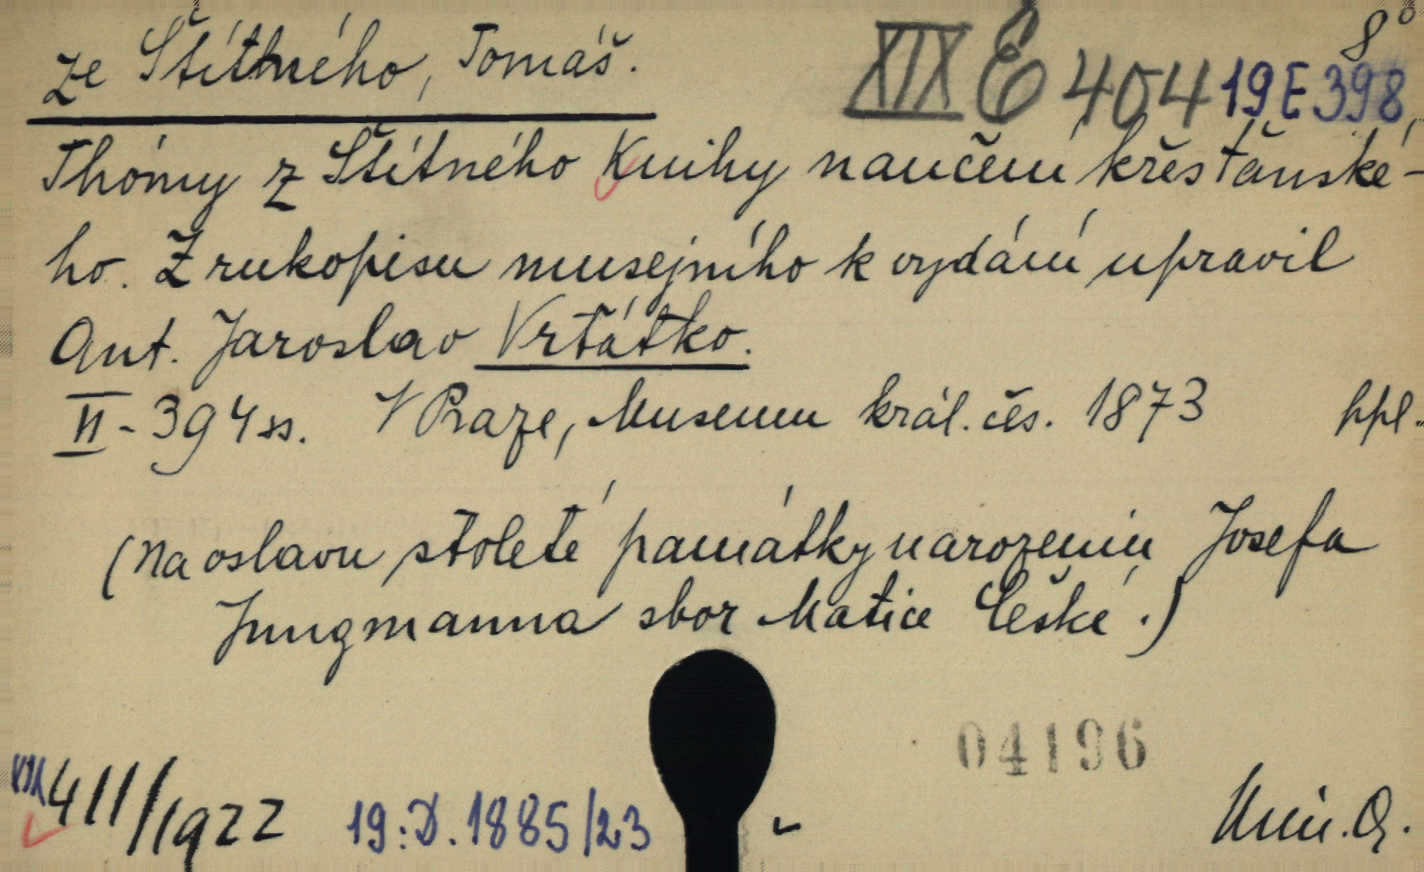 8°
ze Štítného, Tomáš.
XIX E 404 19 E 398
Thómy z Štítného Knihy naučení křesťanské-
ho. Z rukopisu musejního k vydání upravil
Ant. Jaroslav Vrťátko.
II-394 ss. V Praze, Museum král. čes. 1873 ppl.
(Na oslavu stoleté památky narozenin Josefa
Jungmanna sbor Matice České.)
04196
411/1922 19.D.1885/23